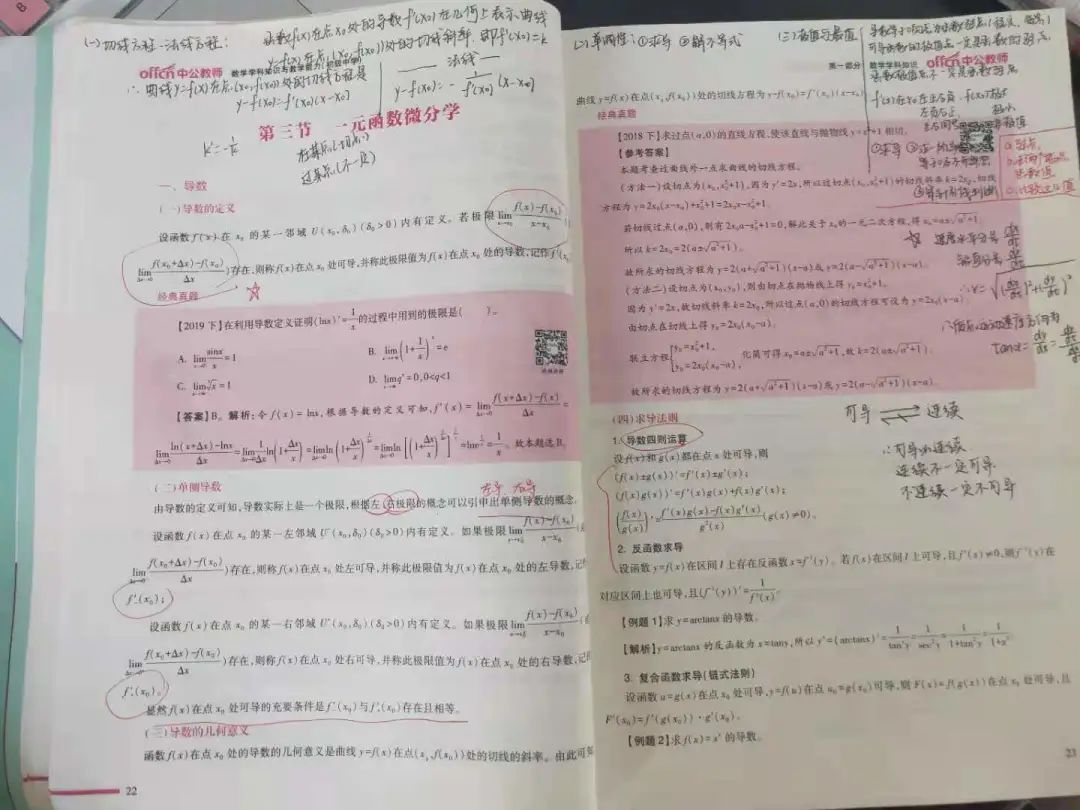 (一) 切线方程、法线方程:
函数f(x)在点x₀处的导数f'(x₀)在几何上表示曲线
y=f(x)在点(x₀,f(x₀))处的切线斜率,即f'(x₀)=k
offcn中公教师 数学学科知识与教学能力(初级中学)
∴曲线y=f(x)在点(x₀,f(x₀))处的切线方程是
y-f(x₀)=f'(x₀)(x-x₀)
法线——
y-f(x₀)=-1/f'(x₀)(x-x₀)
第三节 一元函数微分学
k'=-1/k
在某点(切点)
过某点(不一定)
一、导数
(一)导数的定义
设函数f(x)在x₀的某一邻域U(x₀,δ₀)(δ₀>0)内有定义。若极限lim(x→x₀) [f(x)-f(x₀)]/(x-x₀)
lim(Δx→0) [f(x₀+Δx)-f(x₀)]/Δx 存在,则称f(x)在点x₀处可导,并称此极限值为f(x)在点x₀处的导数,记作f'(x₀
经典真题
【2019下】在利用导数定义证明(lnx)'=1/x的过程中用到的极限是( )。
A. lim sinx/x=1
B. lim(1+1/x)ˣ=e
C. lim ⁿ√x=1
D. lim qⁿ=0,0<q<1
【答案】B。解析:令f(x)=lnx,根据导数的定义可知,f'(x)=lim(Δx→0) [f(x+Δx)-f(x)]/Δx=
lim(Δx→0) [ln(x+Δx)-lnx]/Δx=lim(Δx→0) 1/Δx ln(1+Δx/x)=lim ln(1+Δx/x)^(1/Δx)=lim ln[(1+Δx/x)^(x/Δx)]^(1/x)=lne^(1/x)=1/x。故本题选B。
(二)单侧导数
左导、右导
由导数的定义可知,导数实际上是一个极限,根据左(右)极限的概念可以引申出单侧导数的概念。
设函数f(x)在点x₀的某一左邻域U(x₀,δ₀)(δ₀>0)内有定义。如果极限lim [f(x)-f(x₀)]/(x-x₀)
lim [f(x₀+Δx)-f(x₀)]/Δx 存在,则称f(x)在点x₀处左可导,并称此极限值为f(x)在点x₀处的左导数,记作
f'₋(x₀);
设函数f(x)在点x₀的某一右邻域U(x₀,δ₀)(δ₀>0)内有定义。如果极限lim [f(x)-f(x₀)]/(x-x₀)
lim [f(x₀+Δx)-f(x₀)]/Δx 存在,则称f(x)在点x₀处右可导,并称此极限值为f(x)在点x₀处的右导数,记作
f'₊(x₀)。
显然f(x)在点x₀处可导的充要条件是f'₋(x₀)与f'₊(x₀)存在且相等。
(三)导数的几何意义
函数f(x)在点x₀处的导数的几何意义是曲线y=f(x)在点(x₀,f(x₀))处的切线的斜率。由此可知
22
(二)单调性:①求导 ②解不等式
(三)极值与最值
可导函数的极值点一定是函数的驻点,
第一部分 数学学科知识 offcn中公教师
函数极值点不一定是函数驻点
曲线y=f(x)在点(x₀,f(x₀))处的切线方程为y-f(x₀)=f'(x₀)(x-x₀)
经典真题
①求导
【2018下】求过点(a,0)的直线方程,使该直线与抛物线y=x²+1相切。
【参考答案】
本题考查过曲线外一点求曲线的切线方程。
(方法一)设切点为(x₀,x₀²+1),因为y'=2x,所以过切点(x₀,x₀²+1)的切线斜率k=2x₀,切线
方程为y=2x₀(x-x₀)+x₀²+1=2x₀x-x₀²+1。
若切线过点(a,0),则有2x₀a-x₀²+1=0,解此关于x₀的一元二次方程,得x₀=a±√(a²+1)。
所以k=2x₀=2(a±√(a²+1))。
故所求的切线方程为y=2(a+√(a²+1))(x-a)或y=2(a-√(a²+1))(x-a)。
速度水平分量 dx/dt
(方法二)设切点为(x₀,y₀),则由切点在抛物线上得y₀=x₀²+1。
∴v=√((dx/dt)²+(dy/dt)²)
因为y'=2x,故切线斜率k=2x₀,所以过点(a,0)的切线方程可设为y=2x₀(x-a)
由切点在切线上得y₀=2x₀(x₀-a)。
联立方程{y₀=x₀²+1, y₀=2x₀(x₀-a), 化简可得x₀=a±√(a²+1),故k=2(a±√(a²+1))。
故所求的切线方程为y=2(a+√(a²+1))(x-a)或y=2(a-√(a²+1))(x-a)。
(四)求导法则
可导 ⇌ 连续
1. 导数四则运算
设f(x)和g(x)都在点x处可导,则
∴可导必连续
(f(x)±g(x))'=f'(x)±g'(x);
连续不一定可导
(f(x)g(x))'=f'(x)g(x)+f(x)g'(x);
不连续一定不可导
(f(x)/g(x))'=[f'(x)g(x)-f(x)g'(x)]/g²(x) (g(x)≠0)。
2. 反函数求导
设函数y=f(x)在区间I上存在反函数x=f⁻¹(y)。若f(x)在区间I上可导,且f'(x)≠0,则f⁻¹(y)在
对应区间上也可导,且(f⁻¹(y))'=1/f'(x)。
【例题1】求y=arctanx的导数。
【解析】y=arctanx的反函数为x=tany,所以y'=(arctanx)'=1/tan'y=1/sec²y=1/(1+tan²y)=1/(1+x²)。
3. 复合函数求导(链式法则)
设函数u=g(x)在点x₀处可导,y=f(u)在点u₀=g(x₀)可导,则F(x)=f(g(x))在点x₀处可导,且
F'(x₀)=f'(g(x₀))·g'(x₀)。
【例题2】求f(x)=xˣ的导数。
23